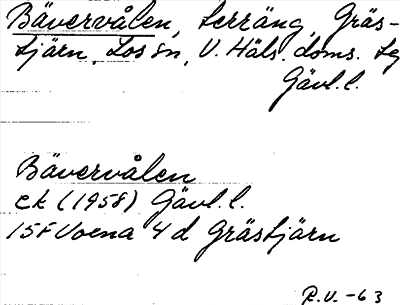 Bävervålen, terräng, Gräs-
tjärn, Los sn, V. Häls. doms. tg
Gävl. l.
Bävervålen
ek (1958) Gävl. l.
15F Voxna 4 d Grästjärn
R.V. -63